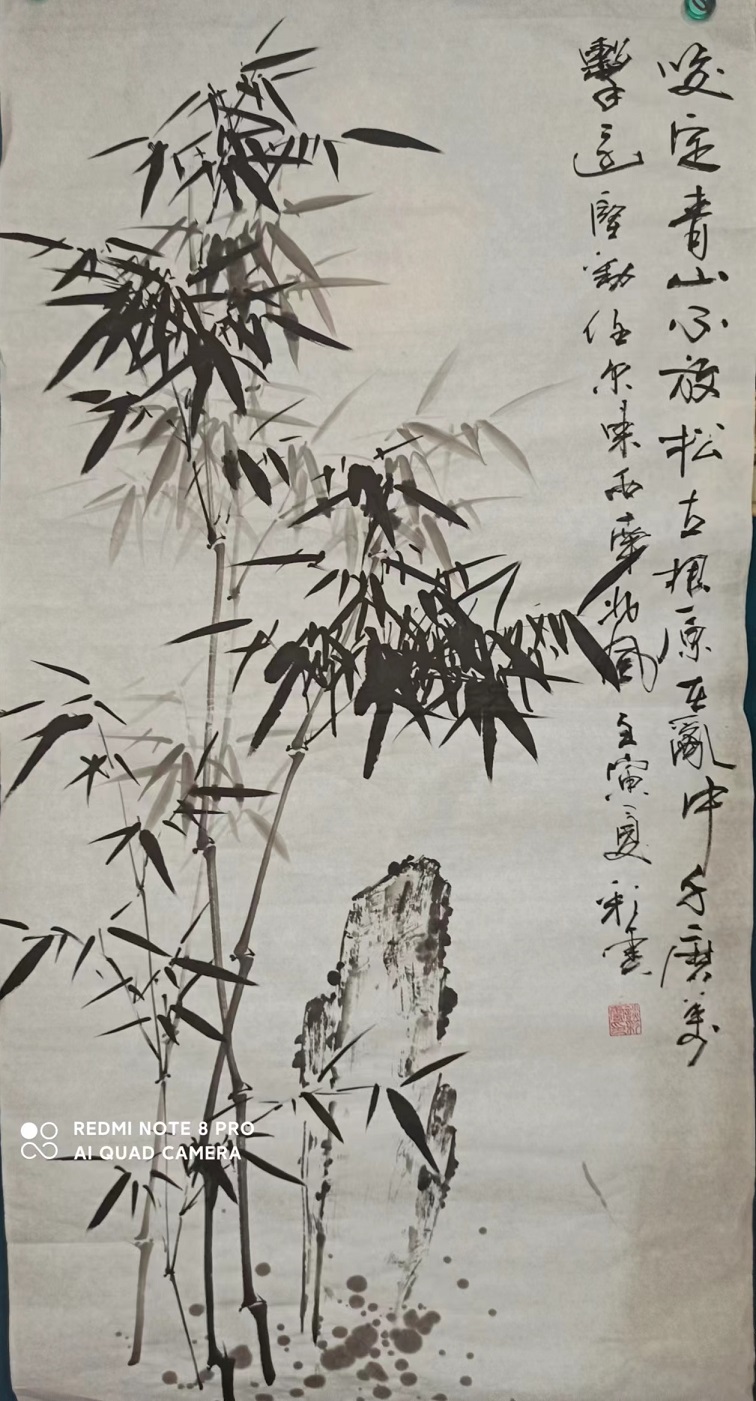 咬定青山不放松立根原在亂中千磨萬
擊還堅勁任尔東西南北風 壬寅夏 彩雲
REDMI NOTE 8 PRO
AI QUAD CAMERA